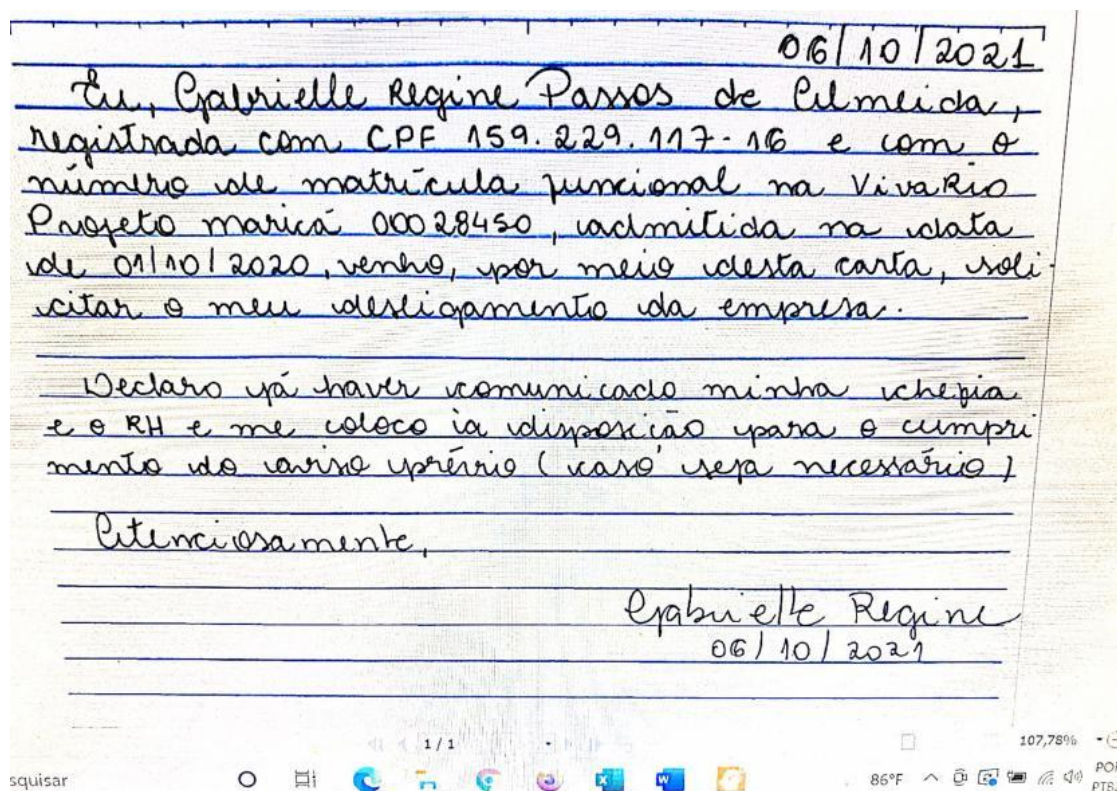 06/10/2021
Eu, Gabrielle Regine Passos de Almeida,
registrada com CPF 159.229.117-16 e com o
número de matrícula funcional na VivaRio
Projeto maricá 00028450, admitida na data
de 01/10/2020, venho, por meio desta carta, soli-
citar o meu desligamento da empresa.
Declaro já haver comunicado minha chefia
e o RH e me coloco à disposição para o cumpri
mento do aviso prévio (caso seja necessário)
Atenciosamente,
Gabrielle Regine
06/10/2021
1/1
107,78%
squisar
86°F
POR
PTB